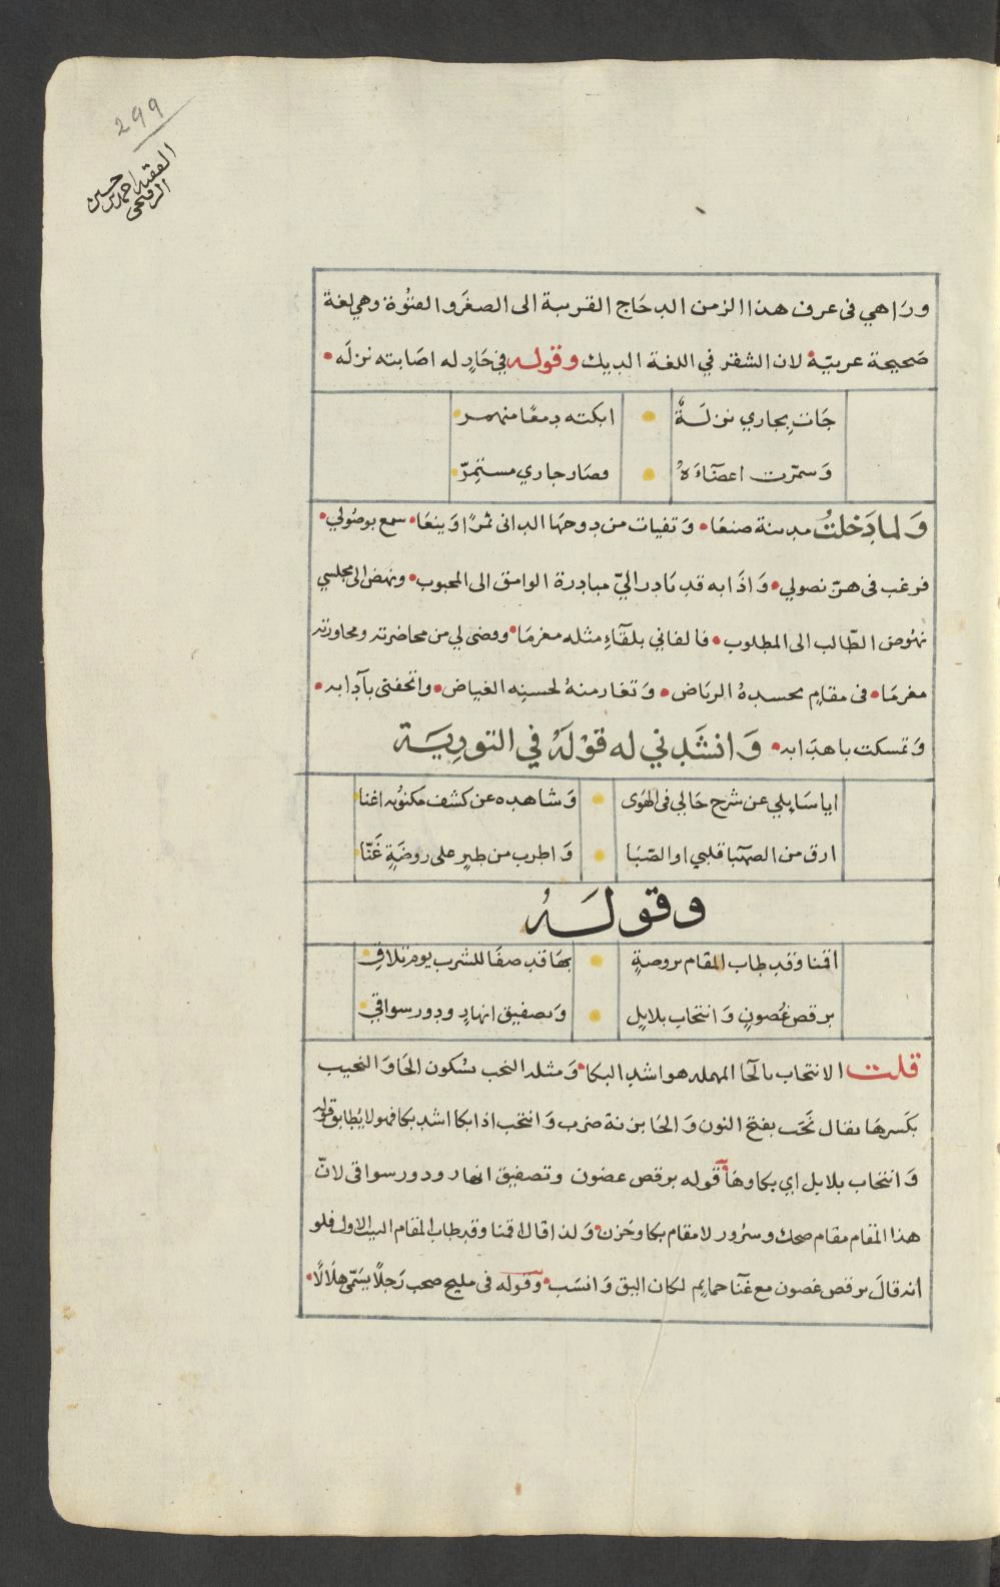 299
الفقيه احمد بن حسين
الرقيحي
ورَا هي فى عرف هذا الزمن الدجَاج القريبة الى الصغر و الفتوة وهي لغة
صَحيحة عربيّة لان الشقر في اللغة الديك وقوله في جَارٍ له اصَابته نزلَه
جَات بجاري نزلَةٌ ابكته دمعًا منهمر
وَسمّرت اعضَآءَهُ فصَار جاري مستمِرّ
وَلما دَخلتُ مدينة صنعَا وَتفيات من دوحهَا الدانى ثمرًا وَينعَا سمع بوصُولي
فرغب فى هزّ نصولي وَاذَا به قد بَادر اليّ مبادرة الوامق الى المحبوب ونهض الى مجلسي
نهُوض الطّالب الى المطلوب فالفاني بلقآءِ مثله مغرمَا وقضى لي من محاضرته ومحاورته
مغرمَا فى مقامٍ تحسدهُ الريَاض وَتغار منهُ لحسنِه الغياض واتحفنى بآدابه
وَتمسكت باهدَابه وَانشَدني له قوْلَهُ في التورِيَة
ايا سَايلي عن شرح حَالي فى الهَوى وَشاهده عن كشف مكنُونه اغنا
ارق من الصهبا قلبي او الصَبَا وَاطرب من طيرٍ على روضَةٍ غَنّا
وقولَهُ
اقمنا وَقد طاب المقام بروضةٍ بهَا قد صفَا للشرب يوم تلاقِ
برقص غُصونٍ وَانتحاب بلابلٍ وَتصفيق انهارٍ ودور سواقي
قلت الانتحاب بالحَا المهمله هو اشد البكا وَمثله النحب بسُكون الحَا وَالنحيب
بكَسرهَا يقال نَحَب بفتح النون وَالحَا بزنة ضرب وَانتحب اذا بكا اشد بكا فهو لا يُطابق قوله
وَانتحاب بلابل اي بكاوهَا قوله برقص غصون وتصفيق انهار ودور سواقى لانّ
هذا المقام مقام ضحك وسرُور لا مقام بكا وحَزن وَلذا قال اقمنا وقد طاب المقام البيت الاول فلو
انه قالَ برقص غصون مع غنَآ حمايم لكان اليق وَانسَب وقوله فى مليح صحب رَجلًا يسَمّى هلَالًا